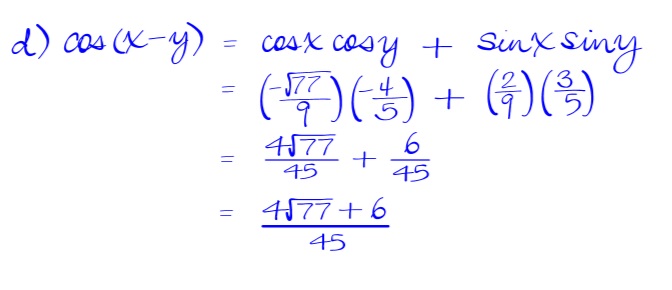 d) cos(x-y) = cosx cosy + sinx siny
= (-√77/9)(-4/5) + (2/9)(3/5)
= 4√77/45 + 6/45
= (4√77 + 6)/45